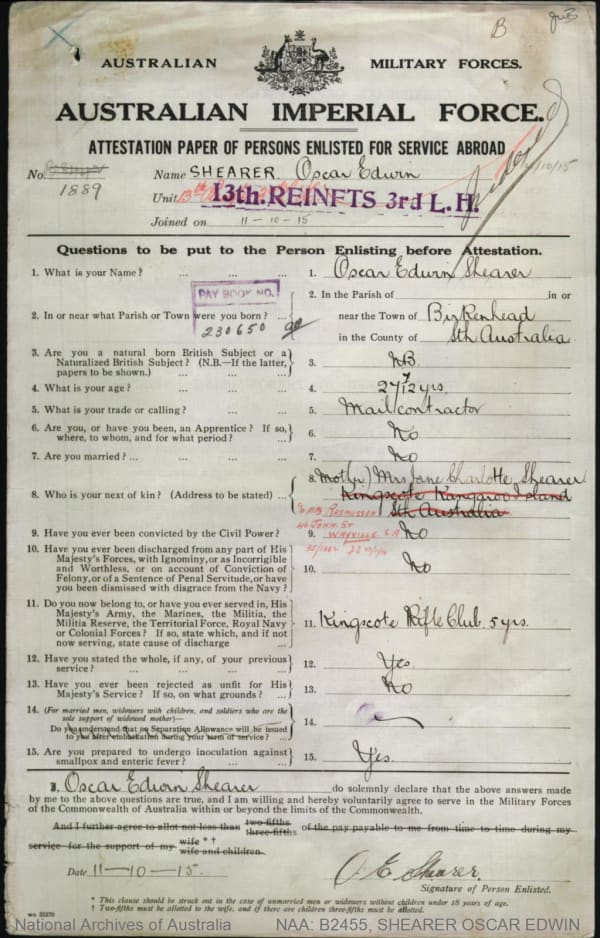 B
AUSTRALIAN MILITARY FORCES.
AUSTRALIAN IMPERIAL FORCE.
ATTESTATION PAPER OF PERSONS ENLISTED FOR SERVICE ABROAD
No. 1889 Name SHEARER Oscar Edwin
Unit 13th. REINFTS 3rd L.H.
Joined on 11-10-15
Questions to be put to the Person Enlisting before Attestation.
1. What is your Name? ... ... ... 1. Oscar Edwin Shearer
PAY BOOK NO.
230650
2. In or near what Parish or Town were you born? ... 2. In the Parish of in or
near the Town of Birkenhead
in the County of Sth Australia
3. Are you a natural born British Subject or a
Naturalized British Subject? (N.B.—If the latter,
papers to be shown.) ... ... 3. NB
4. What is your age? ... ... ... 4. 27 7/12 yrs.
5. What is your trade or calling? ... ... 5. Mail contractor
6. Are you, or have you been, an Apprentice? If so,
where, to whom, and for what period? ... 6. No
7. Are you married? ... ... ... 7. No
8. Who is your next of kin? (Address to be stated) ... 8. Moth(r) Mrs Jane Charlotte Shearer
Kingscote Kangaroo Island
Sth Australia
c/o Mrs Rasmussen
46 John St
Wayville S.A
9. Have you ever been convicted by the Civil Power? 9. No
10. Have you ever been discharged from any part of His
Majesty's Forces, with Ignominy, or as Incorrigible
and Worthless, or on account of Conviction of
Felony, or of a Sentence of Penal Servitude, or have
you been dismissed with disgrace from the Navy? 10. No
11. Do you now belong to, or have you ever served in, His
Majesty's Army, the Marines, the Militia, the
Militia Reserve, the Territorial Force, Royal Navy
or Colonial Forces? If so, state which, and if not
now serving, state cause of discharge ... 11. Kingscote Rifle Club 5 yrs.
12. Have you stated the whole, if any, of your previous
service? ... ... ... 12. Yes
13. Have you ever been rejected as unfit for His
Majesty's Service? If so, on what grounds? ... 13. No
14. (For married men, widowers with children, and soldiers who are the
sole support of widowed mother)—
Do you understand that no Separation Allowance will be issued
to you after embarkation during your term of service? ... 14.
15. Are you prepared to undergo inoculation against
smallpox and enteric fever? ... ... 15. Yes.
I, Oscar Edwin Shearer do solemnly declare that the above answers made
by me to the above questions are true, and I am willing and hereby voluntarily agree to serve in the Military Forces
of the Commonwealth of Australia within or beyond the limits of the Commonwealth.
And I further agree to allot not less than two-fifths three-fifths of the pay payable to me from time to time during my
service for the support of my wife * † wife and children.
Date 11-10-15. O E Shearer.
Signature of Person Enlisted.
* This clause should be struck out in the case of unmarried men or widowers without children under 18 years of age.
† Two-fifths must be allotted to the wife, and if there are children three-fifths must be allotted.
National Archives of Australia NAA: B2455, SHEARER OSCAR EDWIN